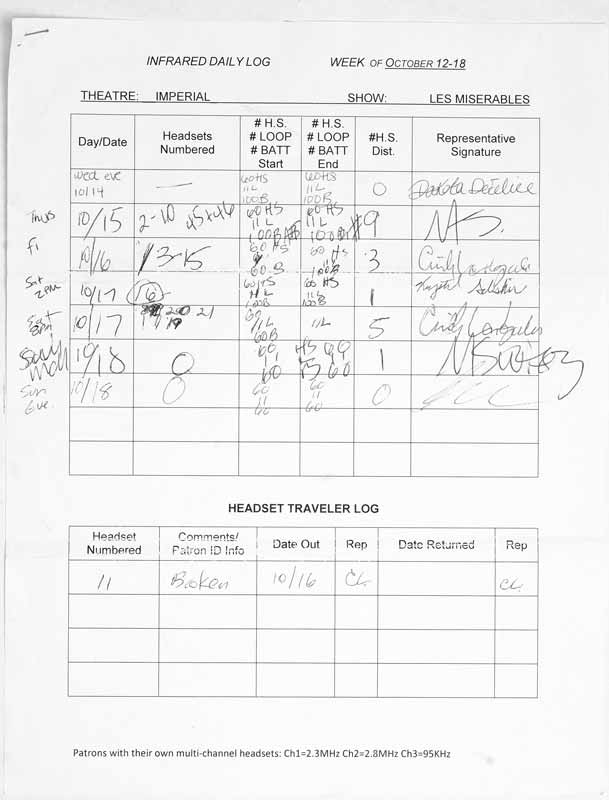 INFRARED DAILY LOG WEEK OF OCTOBER 12-18
THEATRE: IMPERIAL SHOW: LES MISERABLES
Day/Date Headsets Numbered # H.S. # LOOP # BATT Start # H.S. # LOOP # BATT End #H.S. Dist. Representative Signature
Wed eve 10/14 — 60HS 11L 100B 60HS 11L 100B 0
Thurs 10/15 2-10 45+46 60HS 11L 100B 60HS 11L 100B 9
Fi 10/16 13-15 60 HS 60 B 60 HS 100B 3 Cindy
Sat 2pm 10/17 16 60HS 11L 100B 60 HS 11L 100B 1
Sat 8pm 10/17 19 20 21 60 11L 60B 11L 5 Cindy
10/18 0 60 60 HS 60 1
Sun Eve. 10/18 0 60 11 60 60 11 60 0
HEADSET TRAVELER LOG
Headset Numbered Comments/ Patron ID Info Date Out Rep Date Returned Rep
11 Broken 10/16 CL CL
Patrons with their own multi-channel headsets: Ch1=2.3MHz Ch2=2.8MHz Ch3=95KHz